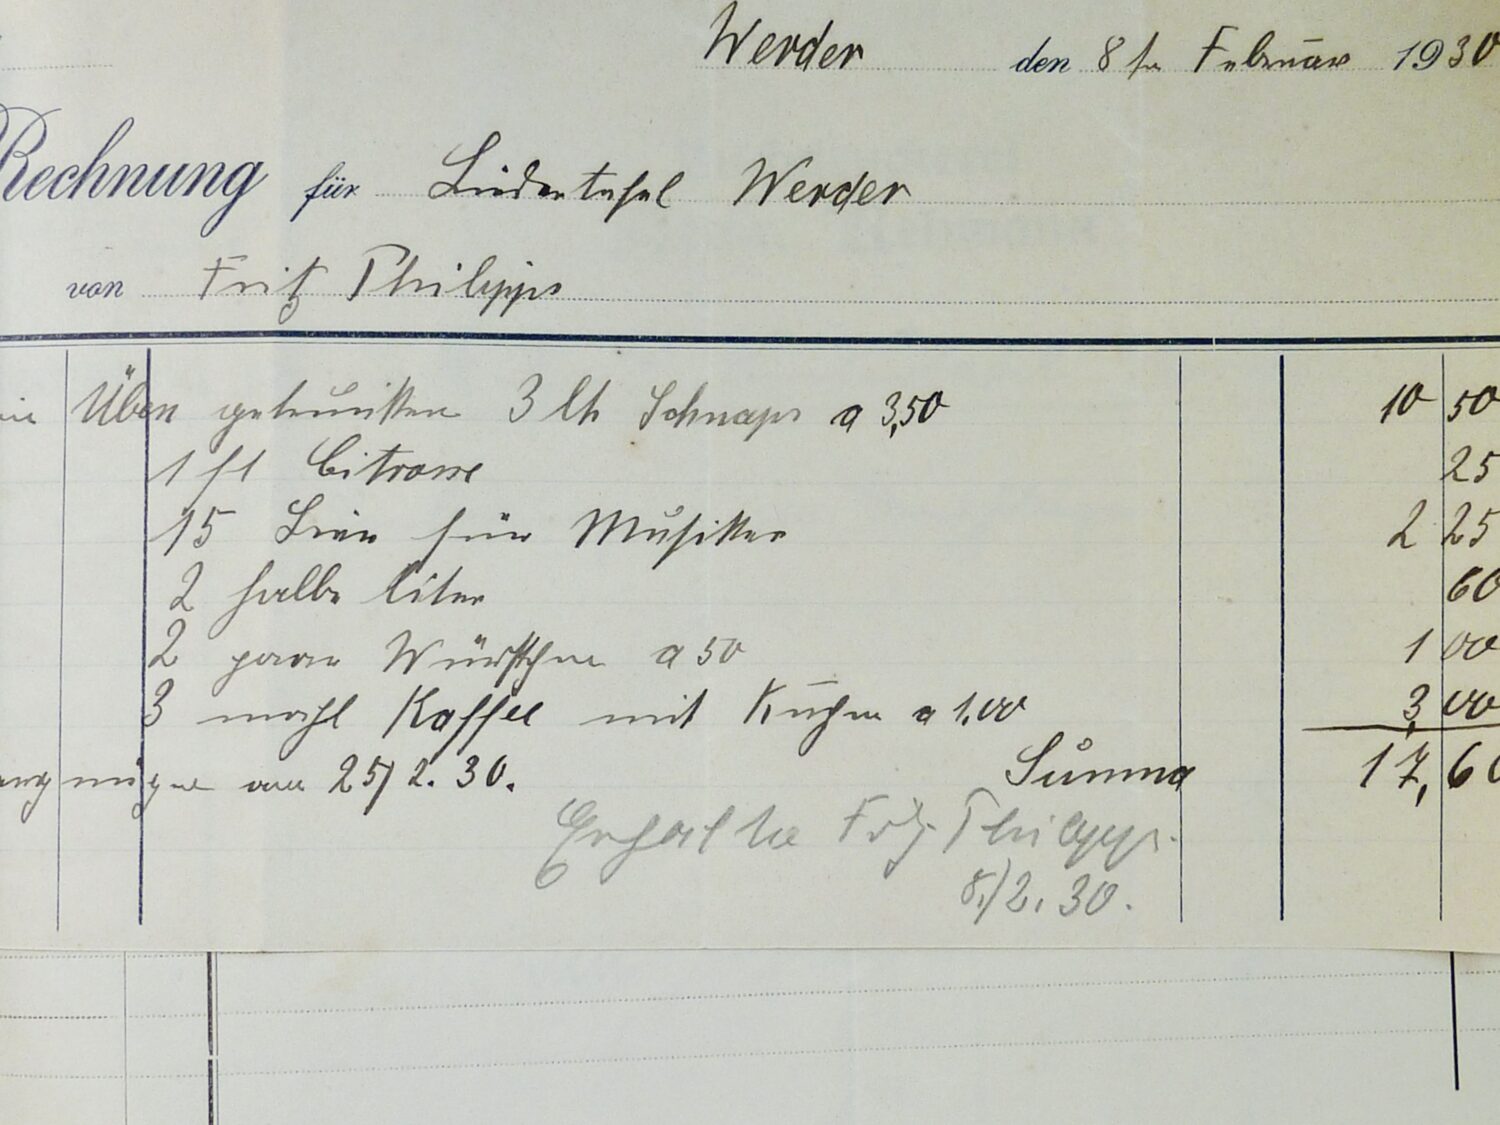 Werder den 8 ten Februar 1930
Rechnung für Liedertafel Werder
von Fritz Philipps
Üben getrunken 3 ltr Schnaps a 3,50 10 50
1 fl Citrone 25
15 Bier für Musiker 2 25
2 halbe Liter 60
2 paar Würstchen a 50 1 00
3 mahl Kaffee mit Kuchen a 1,00 3,00
25/2. 30. Summa 17,60
Erhalten Fritz Philipps.
8./2. 30.